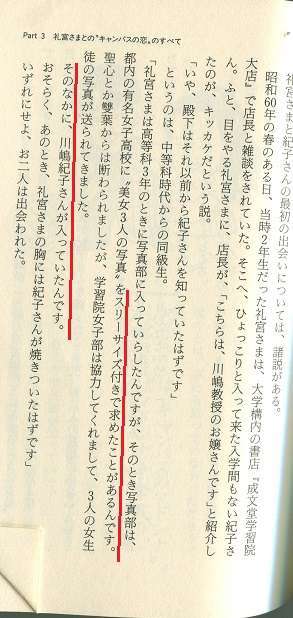 Part 3　礼宮さまとの“キャンパスの恋”のすべて
礼宮さまと紀子さんの最初の出会いについては、諸説がある。
昭和60年の春のある日、当時2年生だった礼宮さまは、大学構内の書店『成文堂学習院
大店』で店長と雑談をされていた。そこへ、ひょっこりと入って来た入学間もない紀子さ
ん。ふと、目をやる礼宮さまに、店長が、「こちらは、川嶋教授のお嬢さんです」と紹介し
たのが、キッカケだという説。
「いや、殿下はそれ以前から紀子さんを知っていたはずです」
というのは、中等科時代からの同級生。
「礼宮さまは高等科3年のときに写真部に入っていらしたんですが、そのとき写真部は、
都内の有名女子高校に〝美女3人の写真〟をスリーサイズ付きで求めたことがあるんです。
聖心とか雙葉からは断わられましたが、学習院女子部は協力してくれまして、3人の女生
徒の写真が送られてきました。
そのなかに、川嶋紀子さんが入っていたんです。
おそらく、あのとき、礼宮さまの胸には紀子さんが焼きついたはずです」
いずれにせよ、お二人は出会われた。